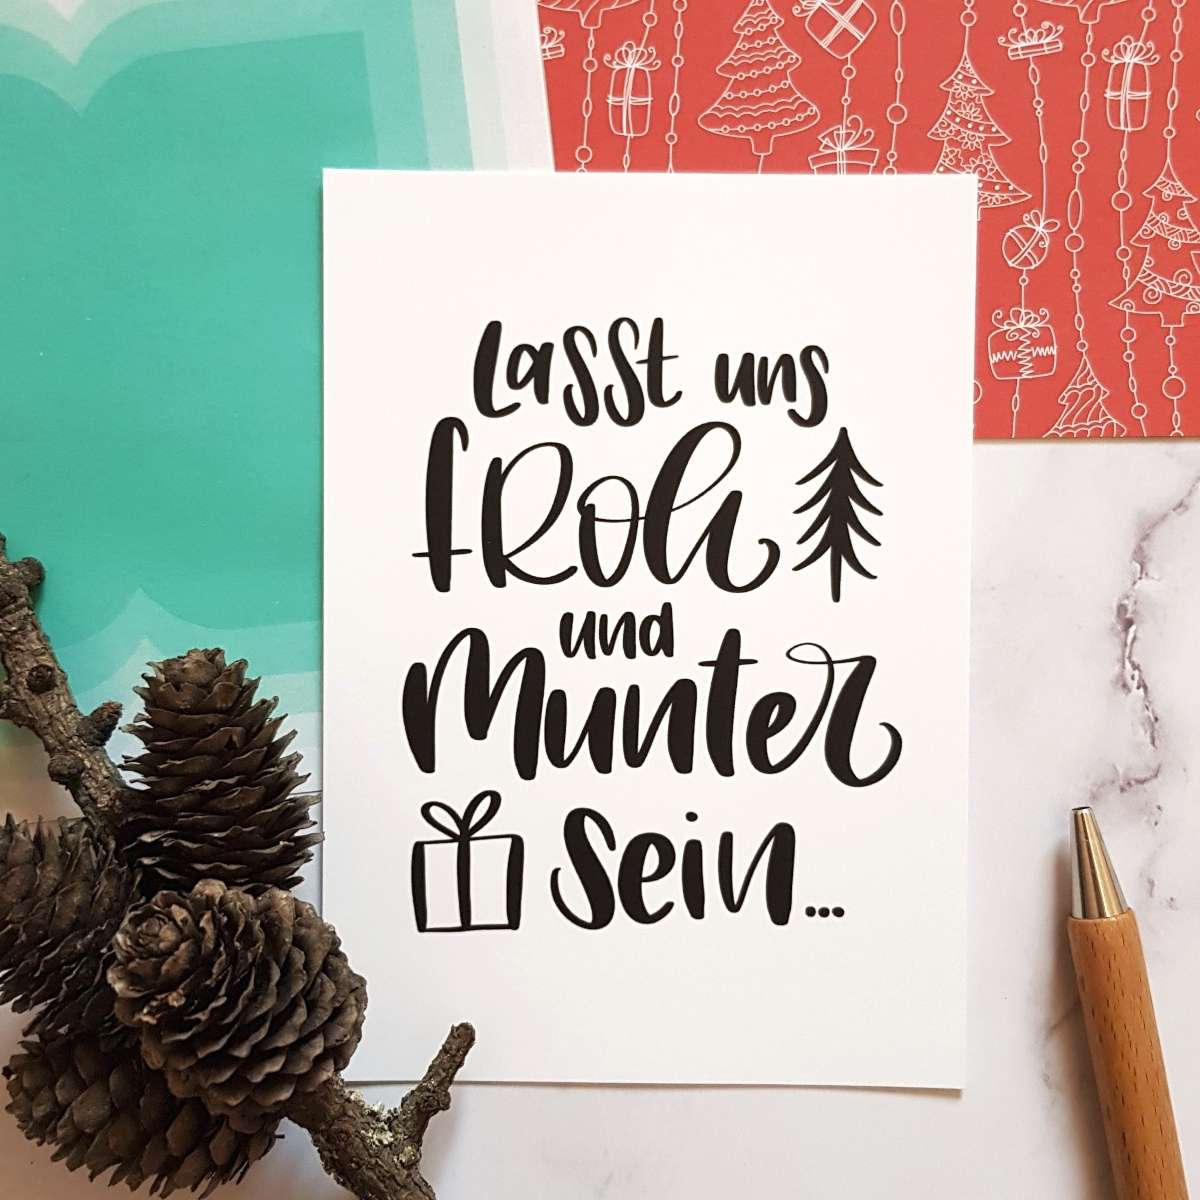 Lasst uns
froh
und
Munter
sein...